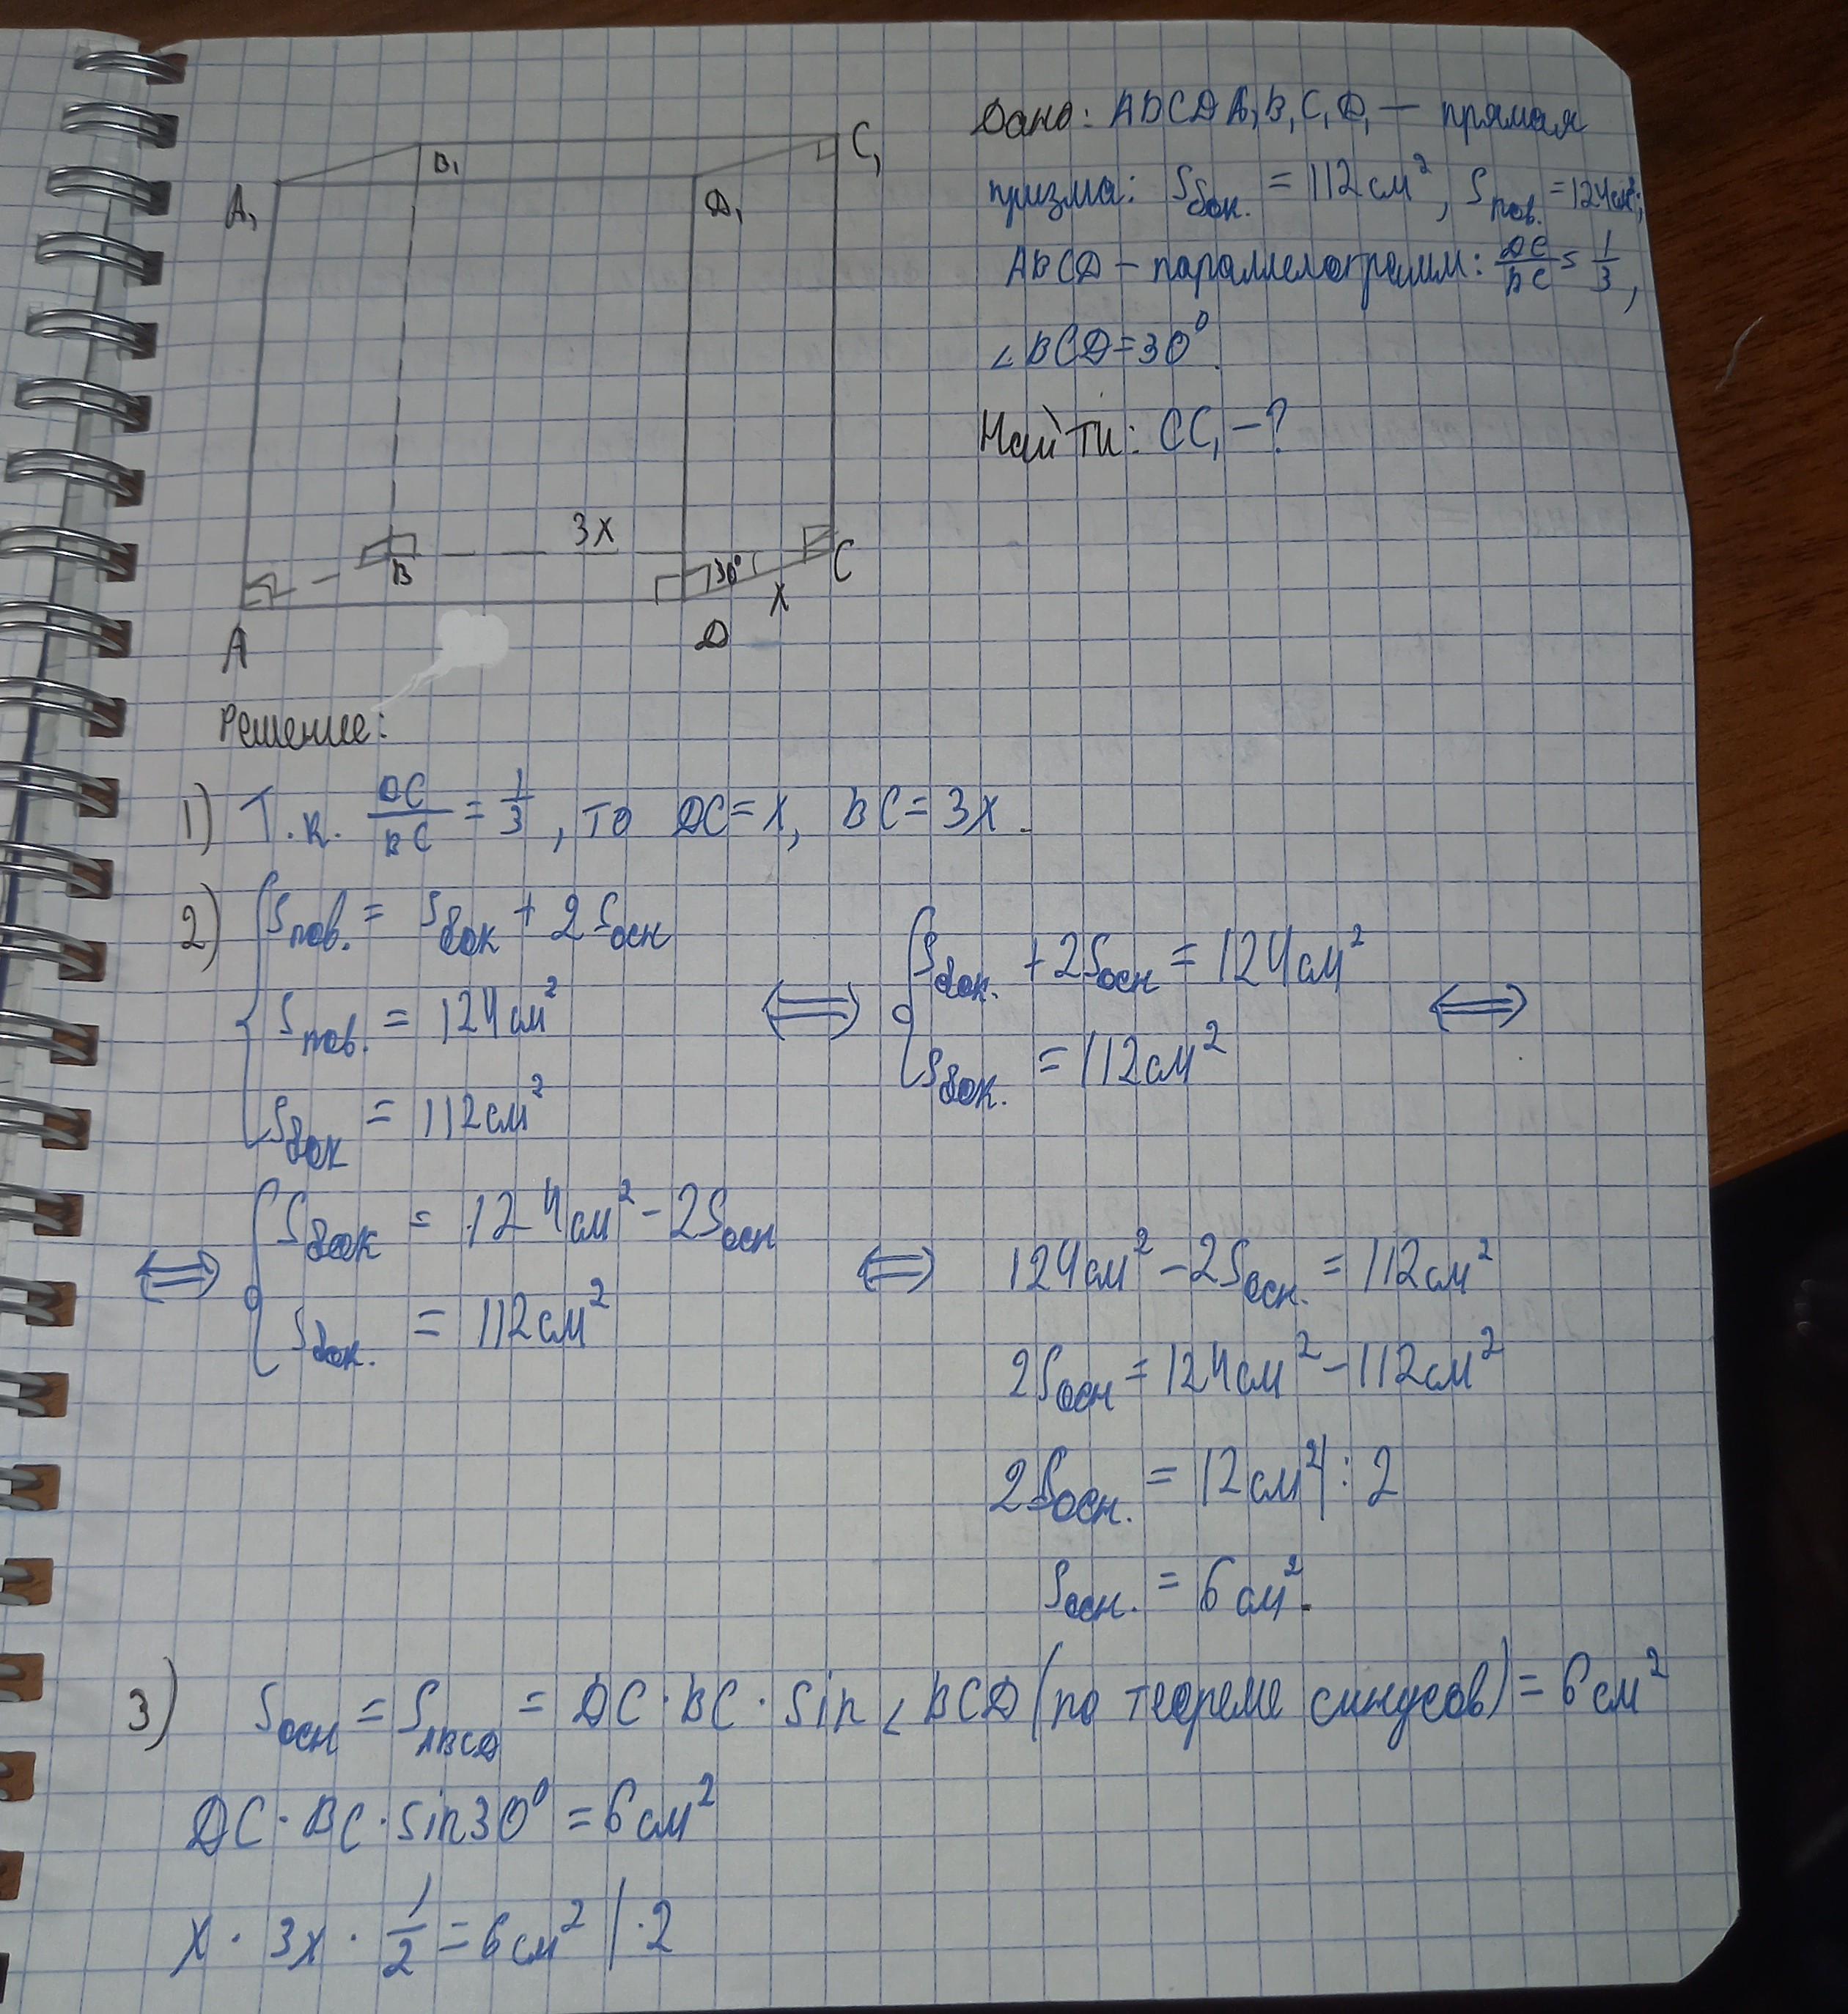 Дано: ABCDA₁B₁C₁D₁ — прямая
призма: Sбок. = 112см², Sпов. = 124см²;
ABCD — параллелограмм: DC/BC = 1/3,
∠BCD = 30°.
Найти: CC₁ — ?
A₁
B₁
C₁
D₁
3x
30°
x
A
B
C
D
Решение:
1) Т.к. DC/BC = 1/3, то DC = x, BC = 3x.
2) { Sпов. = Sбок + 2Sосн
Sпов. = 124см²
Sбок = 112см²
⟺ { Sбок. + 2Sосн = 124см²
Sбок. = 112см² ⟺
⟺ { Sбок = 124см² - 2Sосн
Sбок. = 112см²
⟺ 124см² - 2Sосн. = 112см²
2Sосн = 124см² - 112см²
2Sосн. = 12см² | : 2
Sосн. = 6см².
3) Sосн = SABCD = DC · BC · sin∠BCD (по теореме синусов) = 6см²
DC · BC · sin30° = 6см²
x · 3x · 1/2 = 6см² | · 2